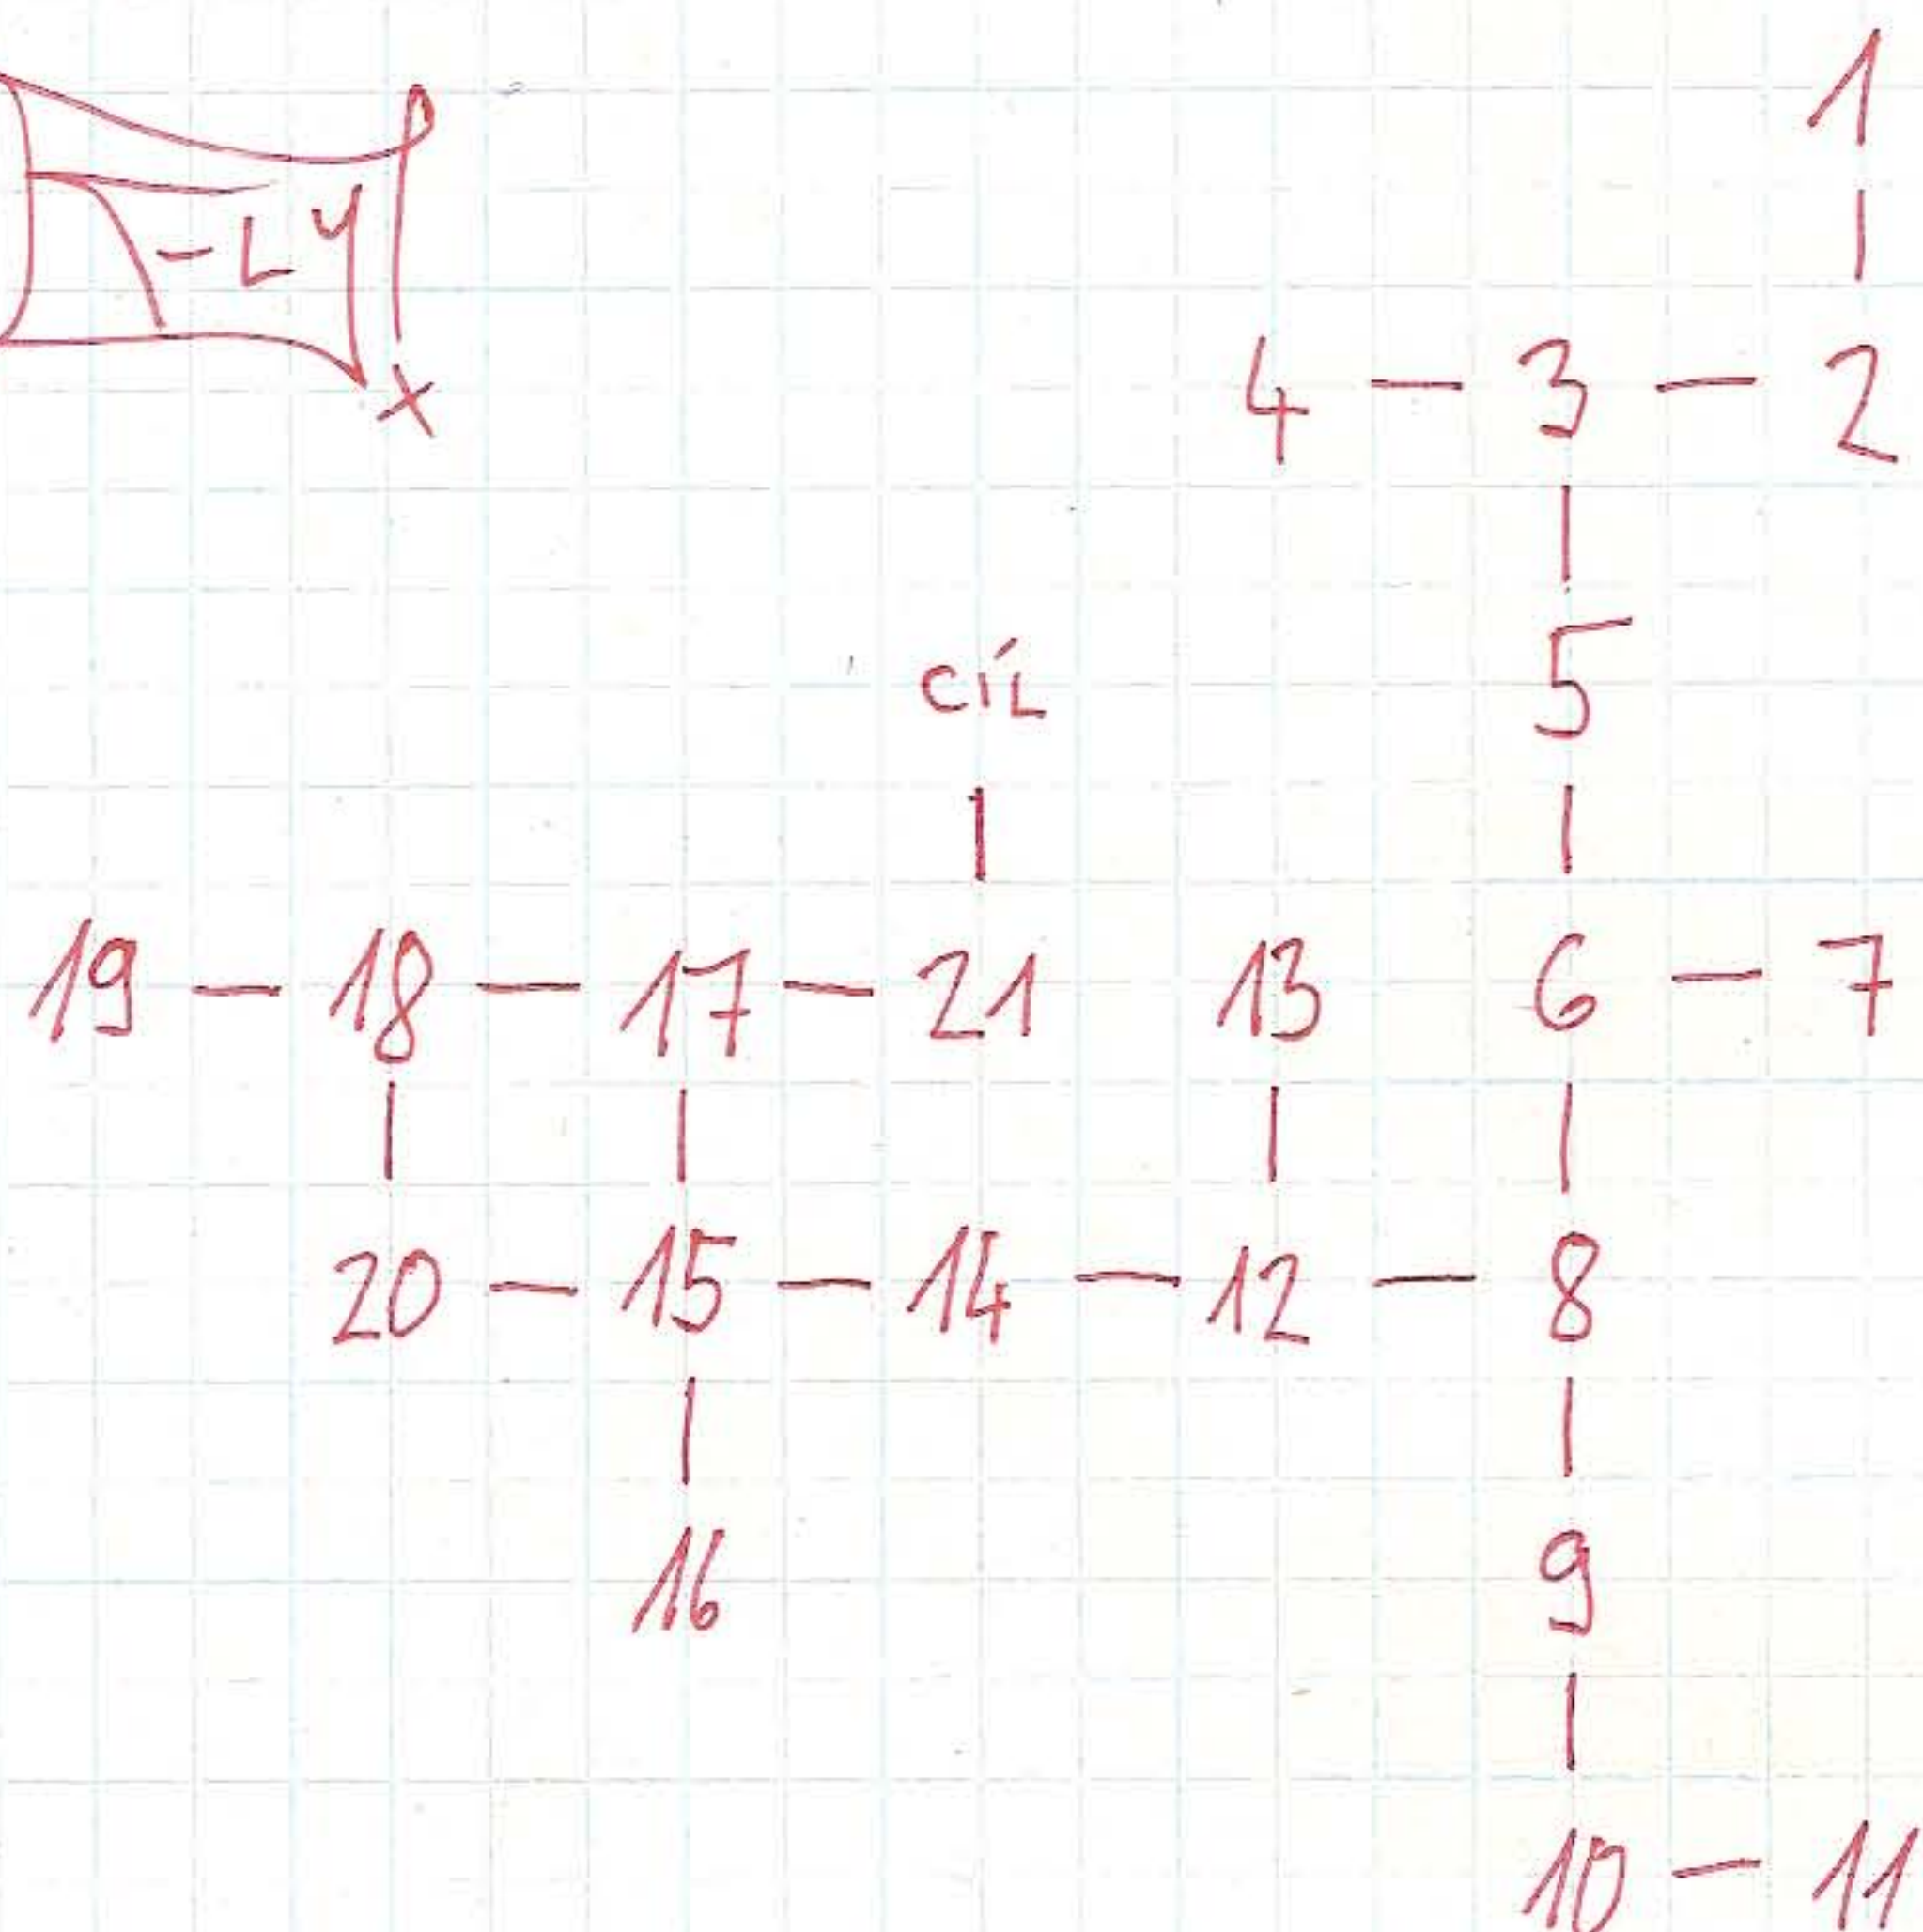 1
- LY
4 - 3 - 2
X
5
CÍL
19 - 18 - 17 - 21 13 6 - 7
20 - 15 - 14 - 12 - 8
16 9
10 - 11